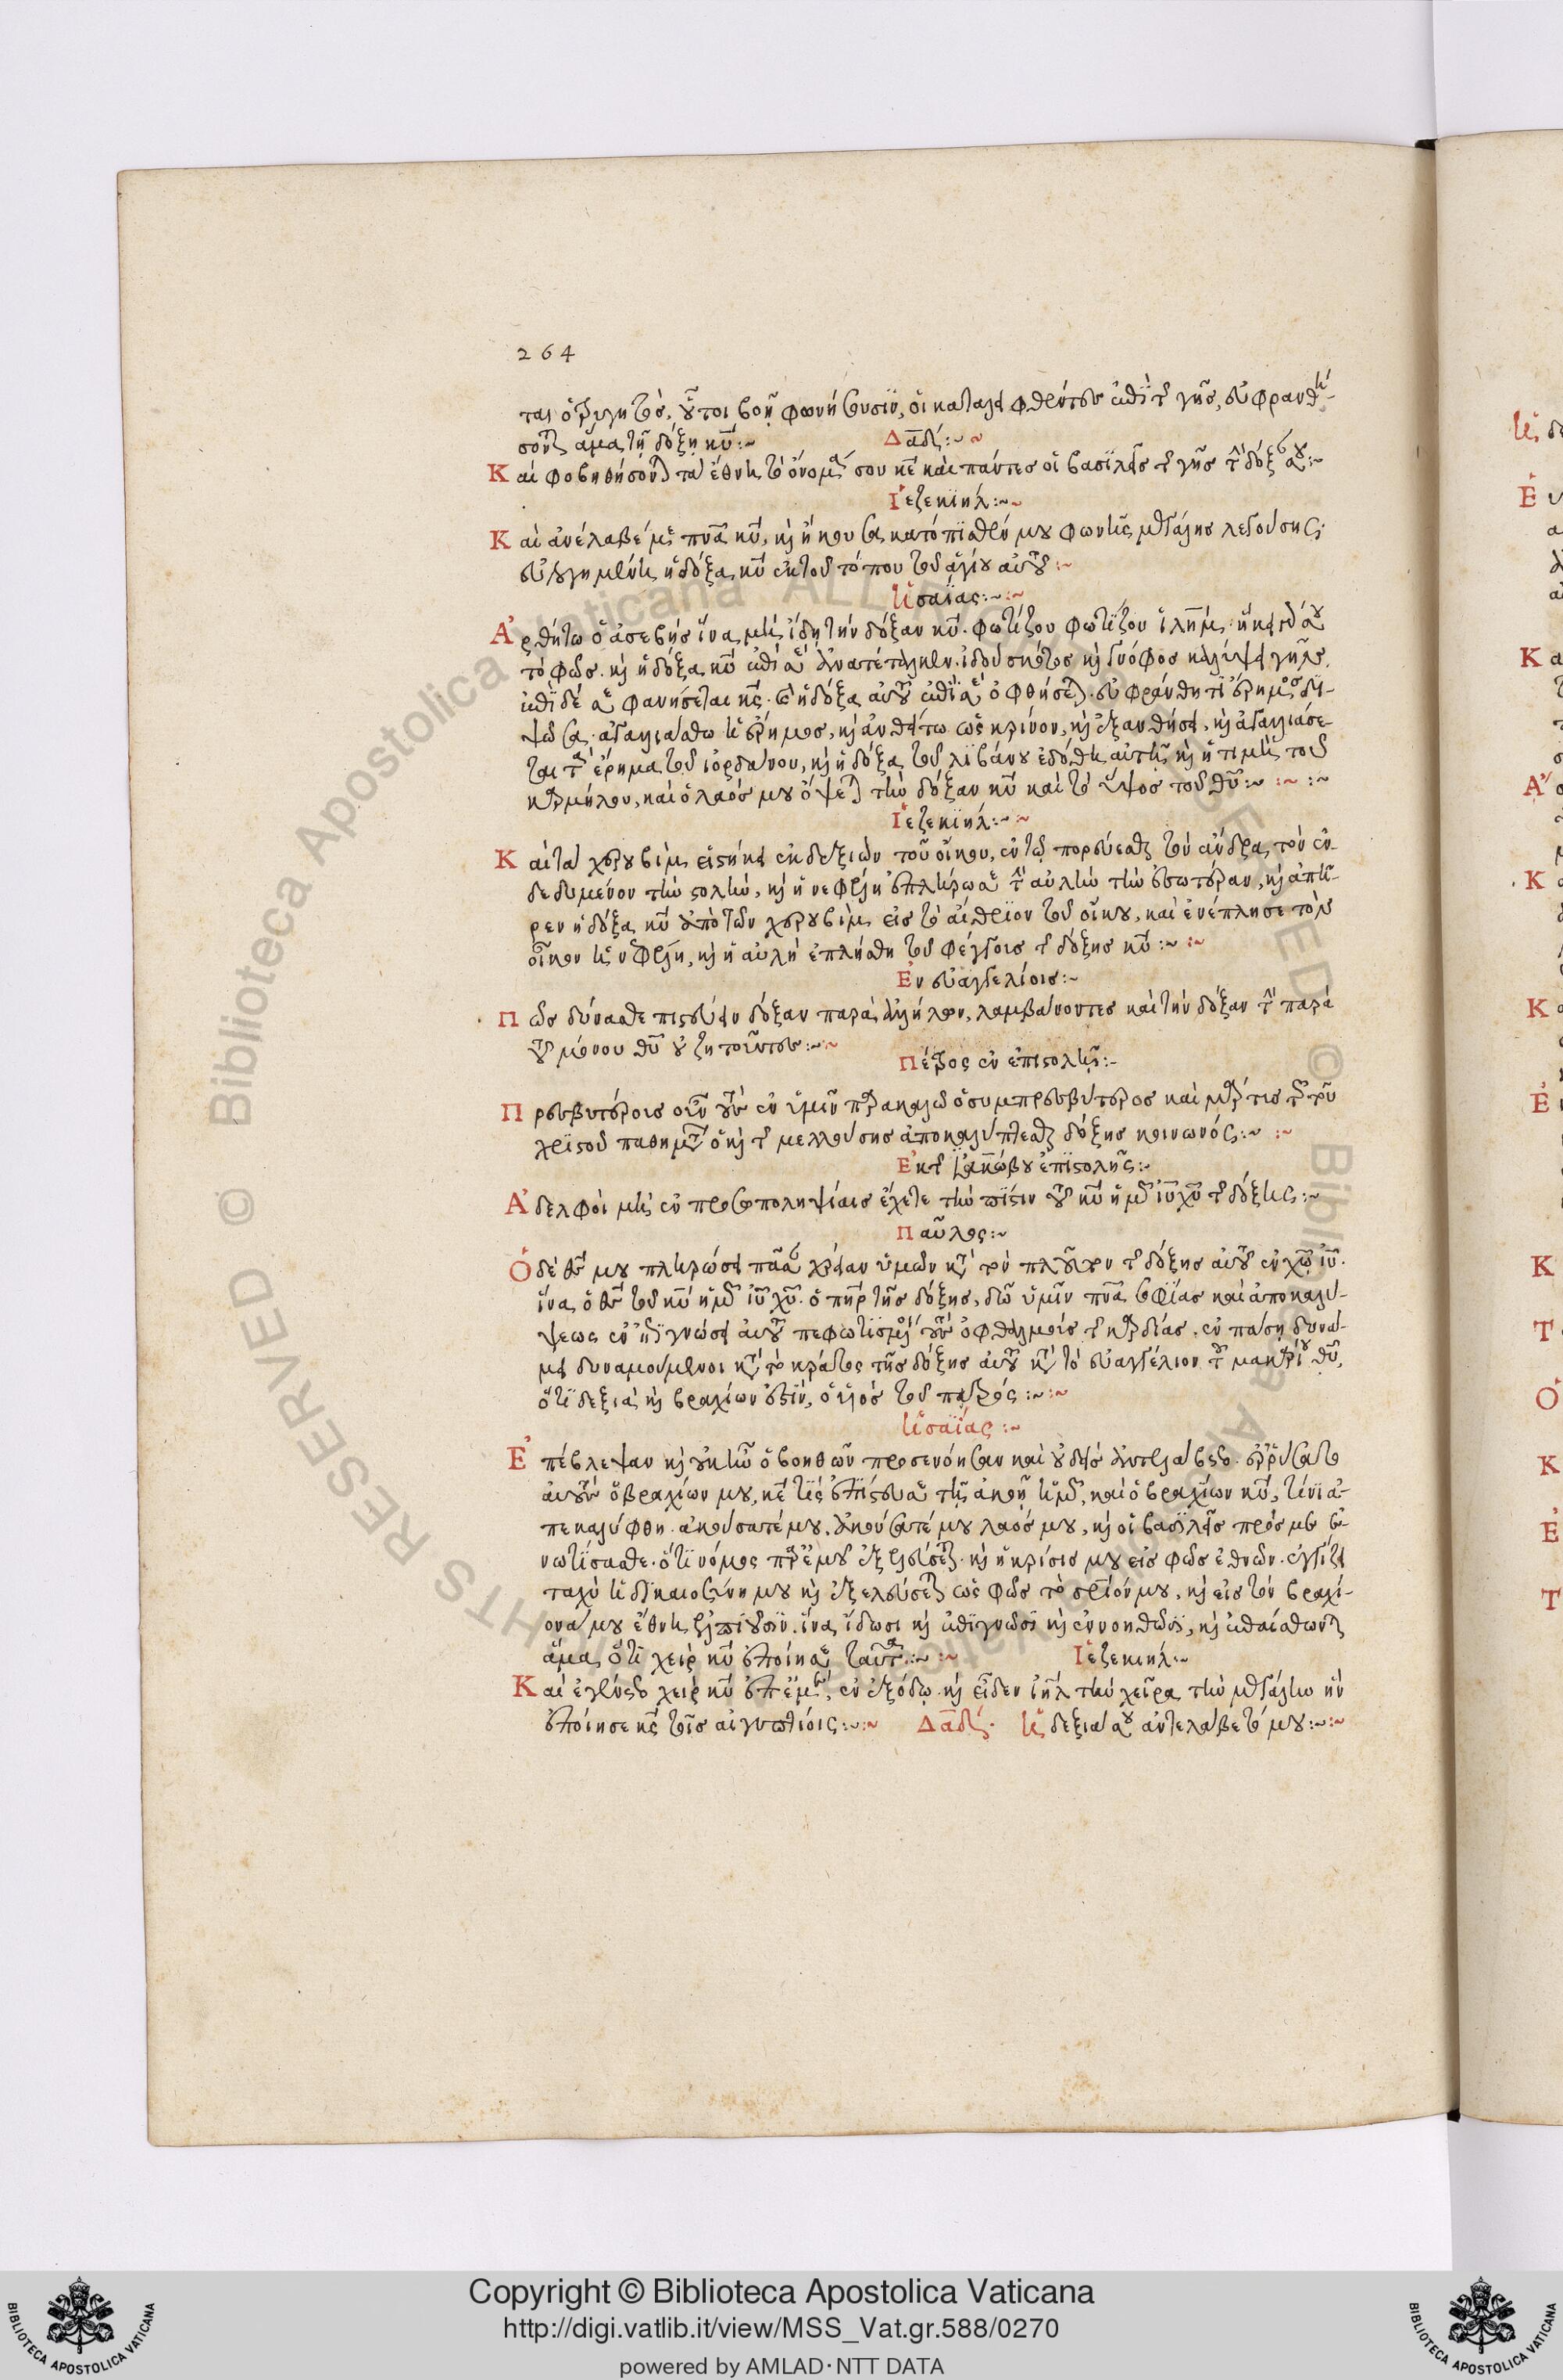 264
ται ὁ τρυγητός, οὗτοι βοῇ φωνήσουσιν, οἱ καταλειφθέντες ἐπὶ τῆς γῆς, εὐφρανθή-
σονται ἅμα τῇ δόξῃ κυ̅:~ Δα̅δ:~
Καὶ φοβηθήσονται τὰ ἔθνη τὸ ὄνομά σου κε̅ καὶ πάντες οἱ βασιλεῖς τῆς γῆς τὴν δόξαν σου:~
Ἰεζεκιήλ:~
Καὶ ἀνέλαβέ με πνα̅ κυ̅, καὶ ἤκουσα κατόπισθέν μου φωνῆς μεγάλης λεγούσης·
εὐλογημένη ἡ δόξα κυ̅ ἐκ τοῦ τόπου τοῦ ἁγίου αὐτοῦ:~
Ἠσαΐας:~
Ἀρθήτω ὁ ἀσεβὴς ἵνα μὴ ἴδῃ τὴν δόξαν κυ̅. φωτίζου φωτίζου ἱλη̅μ· ἥκει γάρ σου
τὸ φῶς. καὶ ἡ δόξα κυ̅ ἐπὶ σὲ ἀνατέταλκεν. ἰδοὺ σκότος καὶ γνόφος καλύψει γῆν.
ἐπὶ δὲ σὲ φανήσεται κς̅. καὶ ἡ δόξα αὐτοῦ ἐπὶ σὲ ὀφθήσεται. εὐφράνθητι ἔρημος δι-
ψῶσα. ἀγαλλιάσθω ἡ ἔρημος, καὶ ἀνθείτω ὡς κρίνον, καὶ ἐξανθήσει, καὶ ἀγαλλιάσε-
ται τὰ ἔρημα τοῦ ἰορδάνου, καὶ ἡ δόξα τοῦ λιβάνου ἐδόθη αὐτῇ καὶ ἡ τιμὴ τοῦ
καρμήλου, καὶ ὁ λαός μου ὄψεται τὴν δόξαν κυ̅ καὶ τὸ ὕψος τοῦ θυ̅:~ :~ :~
Ἰεζεκιήλ:~
Καὶ τὰ χερουβὶμ εἱστήκει ἐκ δεξιῶν τοῦ οἴκου, ἐν τῷ πορεύεσθαι τὸν ἄνδρα τὸν ἐν-
δεδυμένον τὴν στολήν, καὶ ἡ νεφέλη ἐπλήρωσε τὴν αὐλὴν τὴν ἐσωτέραν, καὶ ἀπῆ-
ρεν ἡ δόξα κυ̅ ἀπὸ τῶν χερουβὶμ εἰς τὸ αἴθριον τοῦ οἴκου, καὶ ἐνέπλησε τὸν
οἶκον ἡ νεφέλη, καὶ ἡ αὐλὴ ἐπλήσθη τοῦ φέγγους τῆς δόξης κυ̅:~ :~
Ἐν εὐαγγελίοις:~
Πῶς δύνασθε πιστεύειν δόξαν παρὰ ἀλλήλων λαμβάνοντες καὶ τὴν δόξαν τὴν παρὰ
τοῦ μόνου θυ̅ οὐ ζητοῦντες:~
Πέτρος ἐν ἐπιστολῇ:~
Πρεσβυτέροις οὖν τοῖς ἐν ὑμῖν παρακαλῶ ὁ συμπρεσβύτερος καὶ μάρτυς τῶν τοῦ
χριστοῦ παθημάτων ὁ καὶ τῆς μελλούσης ἀποκαλύπτεσθαι δόξης κοινωνός:~ :~
Ἐκ τῆς ἰακώβου ἐπιστολῆς:~
Ἀδελφοὶ μὴ ἐν προσωποληψίαις ἔχετε τὴν πίστιν τοῦ κυ̅ ἡμῶν ιυ̅ χυ̅ τῆς δόξης:~
Παῦλος:~
Ὁ δὲ θς̅ μου πληρώσει πᾶσαν χρείαν ὑμῶν κατὰ τὸν πλοῦτον τῆς δόξης αὐτοῦ ἐν χω̅ ιυ̅.
ἵνα ὁ θς̅ τοῦ κυ̅ ἡμῶν ιυ̅ χυ̅. ὁ πη̅ρ τῆς δόξης, δώῃ ὑμῖν πνα̅ σοφίας καὶ ἀποκαλύ-
ψεως ἐν ἐπιγνώσει αὐτοῦ πεφωτισμένους τοὺς ὀφθαλμοὺς τῆς καρδίας. ἐν πάσῃ δυνά-
μει δυναμούμενοι κατὰ τὸ κράτος τῆς δόξης αὐτοῦ κατὰ τὸ εὐαγγέλιον τοῦ μακαρίου θυ̅,
ὅτι δεξιὰ καὶ βραχίων ἐστίν, ὁ υἱὸς τοῦ πατρός:~:~
Ἠσαΐας:~
Ἐπέβλεψαν καὶ οὐκ ἦν ὁ βοηθῶν προσενόησαν καὶ οὐδεὶς ἀντελάβετο. ἐρρύσατο
αὐτοὺς ὁ βραχίων μου, κε̅ τίς ἐπίστευσε τῇ ἀκοῇ ἡμῶν, καὶ ὁ βραχίων κυ̅, τίνι ἀ-
πεκαλύφθη. ἀκούσατέ μου, ἀκούσατέ μου λαός μου, καὶ οἱ βασιλεῖς πρός με ἐ-
νωτίσασθε. ὅτι νόμος παρ' ἐμοῦ ἐξελεύσεται. καὶ ἡ κρίσις μου εἰς φῶς ἐθνῶν. ἐγγίζει
ταχὺ ἡ δικαιοσύνη μου καὶ ἐξελεύσεται ὡς φῶς τὸ σωτήριόν μου, καὶ εἰς τὸν βραχί-
ονά μου ἔθνη ἐλπιοῦσιν. ἵνα ἴδωσι καὶ ἐπιγνῶσι καὶ ἐννοηθῶσι, καὶ ἐπίστωνται
ἅμα, ὅτι χεὶρ κυ̅ ἐποίησε ταῦτα:~ :~ Ἰεζεκιήλ:~
Καὶ ἐγένετο χεὶρ κυ̅ ἐπ' ἐμὲ, ἐν ἐξόδῳ. καὶ εἶδεν ιη̅λ τὴν χεῖρα τὴν μεγάλην ἣν
ἐποίησε κς̅ τοῖς αἰγυπτίοις:~:~ Δα̅δ· Ἡ δεξιά σου ἀντελάβετό μου:~:~
Copyright © Biblioteca Apostolica Vaticana
http://digi.vatlib.it/view/MSS_Vat.gr.588/0270
powered by AMLAD·NTT DATA